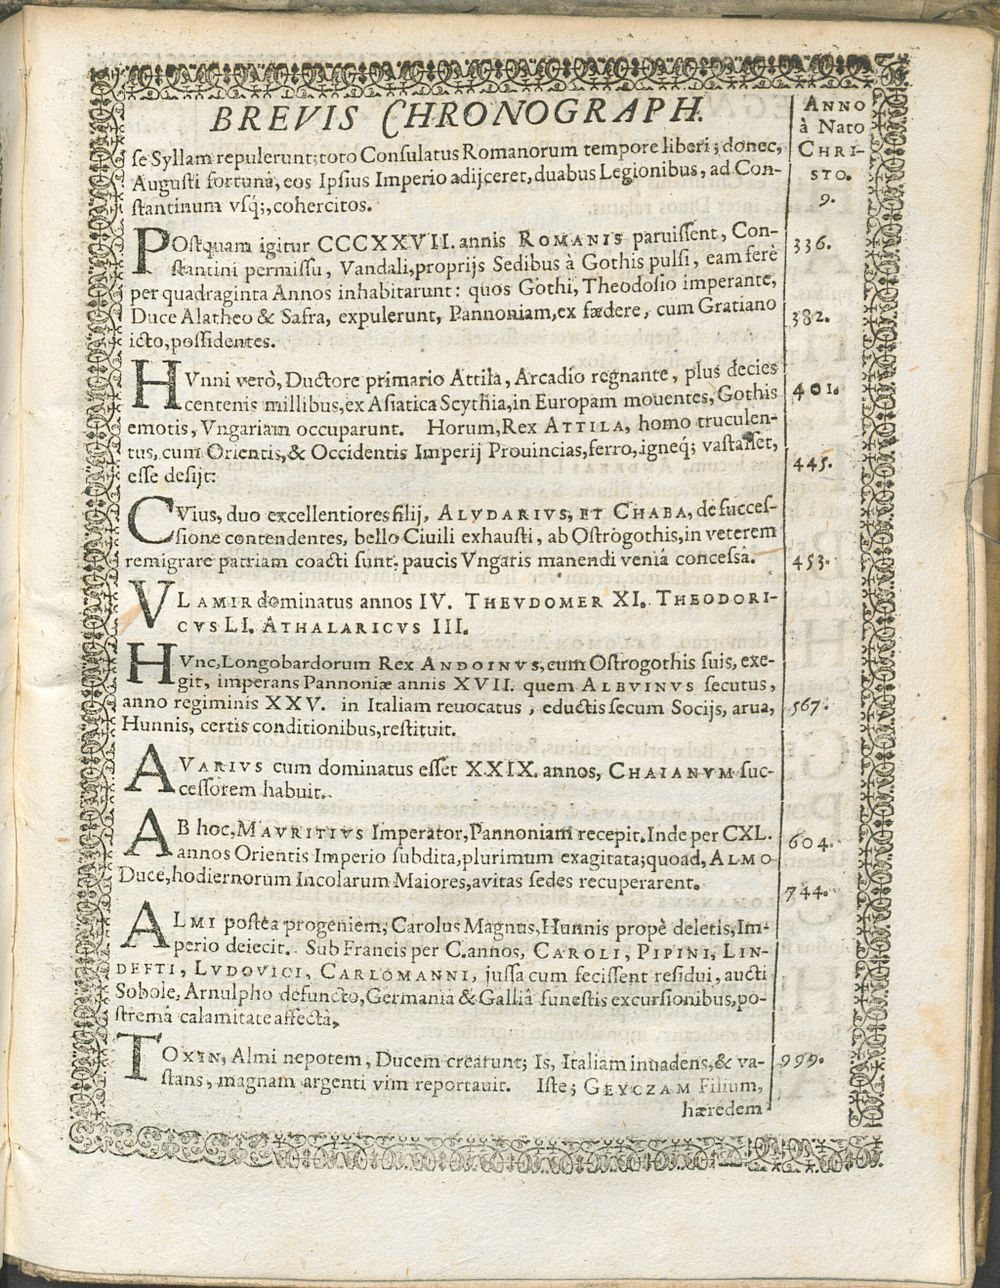 BREVIS CHRONOGRAPH.
ANNO
à Nato
CHRI-
STO.
9.
se Syllam repulerunt; toto Consulatus Romanorum tempore liberi; donec,
Augusti fortuna, eos Ipsius Imperio adijceret, duabus Legionibus, ad Con-
stantinum vsq;, cohercitos.
POstquam igitur CCCXXVII. annis ROMANIS paruissent, Con-
336.
stantini permissu, Vandali, proprijs Sedibus à Gothis pulsi, eam ferè
per quadraginta Annos inhabitarunt: quos Gothi, Theodosio imperante,
Duce Alatheo & Safra, expulerunt, Pannoniam, ex fædere, cum Gratiano
382.
icto, possidentes.
HVnni verò, Ductore primario Attila, Arcadio regnante, plus decies
401.
centenis millibus, ex Asiatica Scythia, in Europam mouentes, Gothis
emotis, Vngariam occuparunt. Horum, Rex ATTILA, homo truculen-
tus, cum Orientis, & Occidentis Imperij Prouincias, ferro, igneq; vastasset,
445.
esse desijt:
CVius, duo excellentiores filij, ALVDARIVS, ET CHABA, de succes-
sione contendentes, bello Ciuili exhausti, ab Ostrogothis, in veterem
remigrare patriam coacti sunt, paucis Vngaris manendi veniâ concessâ.
453.
VLAMIR dominatus annos IV. THEVDOMER XI. THEODORI-
CVS LI. ATHALARICVS III.
HVnc, Longobardorum Rex ANDOINVS, cum Ostrogothis suis, exe-
git, imperans Pannoniæ annis XVII. quem ALBVINVS secutus,
anno regiminis XXV. in Italiam reuocatus, eductis secum Socijs, arua,
567.
Hunnis, certis conditionibus, restituit.
AVARIVS cum dominatus esset XXIX. annos, CHAIANVM suc-
cessorem habuit.
AB hoc, MAVRITIVS Imperator, Pannoniam recepit. Inde per CXL.
604.
annos Orientis Imperio subdita, plurimum exagitata; quoad, ALMO
Duce, hodiernorum Incolarum Maiores, avitas sedes recuperarent.
744.
ALMI postea progeniem, Carolus Magnus, Hunnis propè deletis, Im-
perio deiecit. Sub Francis per C. annos, CAROLI, PIPINI, LIN-
DEFTI, LVDOVICI, CARLOMANNI, jussa cum fecissent residui, aucti
Sobole, Arnulpho defuncto, Germania & Galliâ funestis excursionibus, po-
strema calamitate affectâ,
TOXIN, Almi nepotem, Ducem crearunt; Is, Italiam inuadens, & va-
999.
stans, magnam argenti vim reportauit. Iste; GEYCZAM Filium,
hæredem